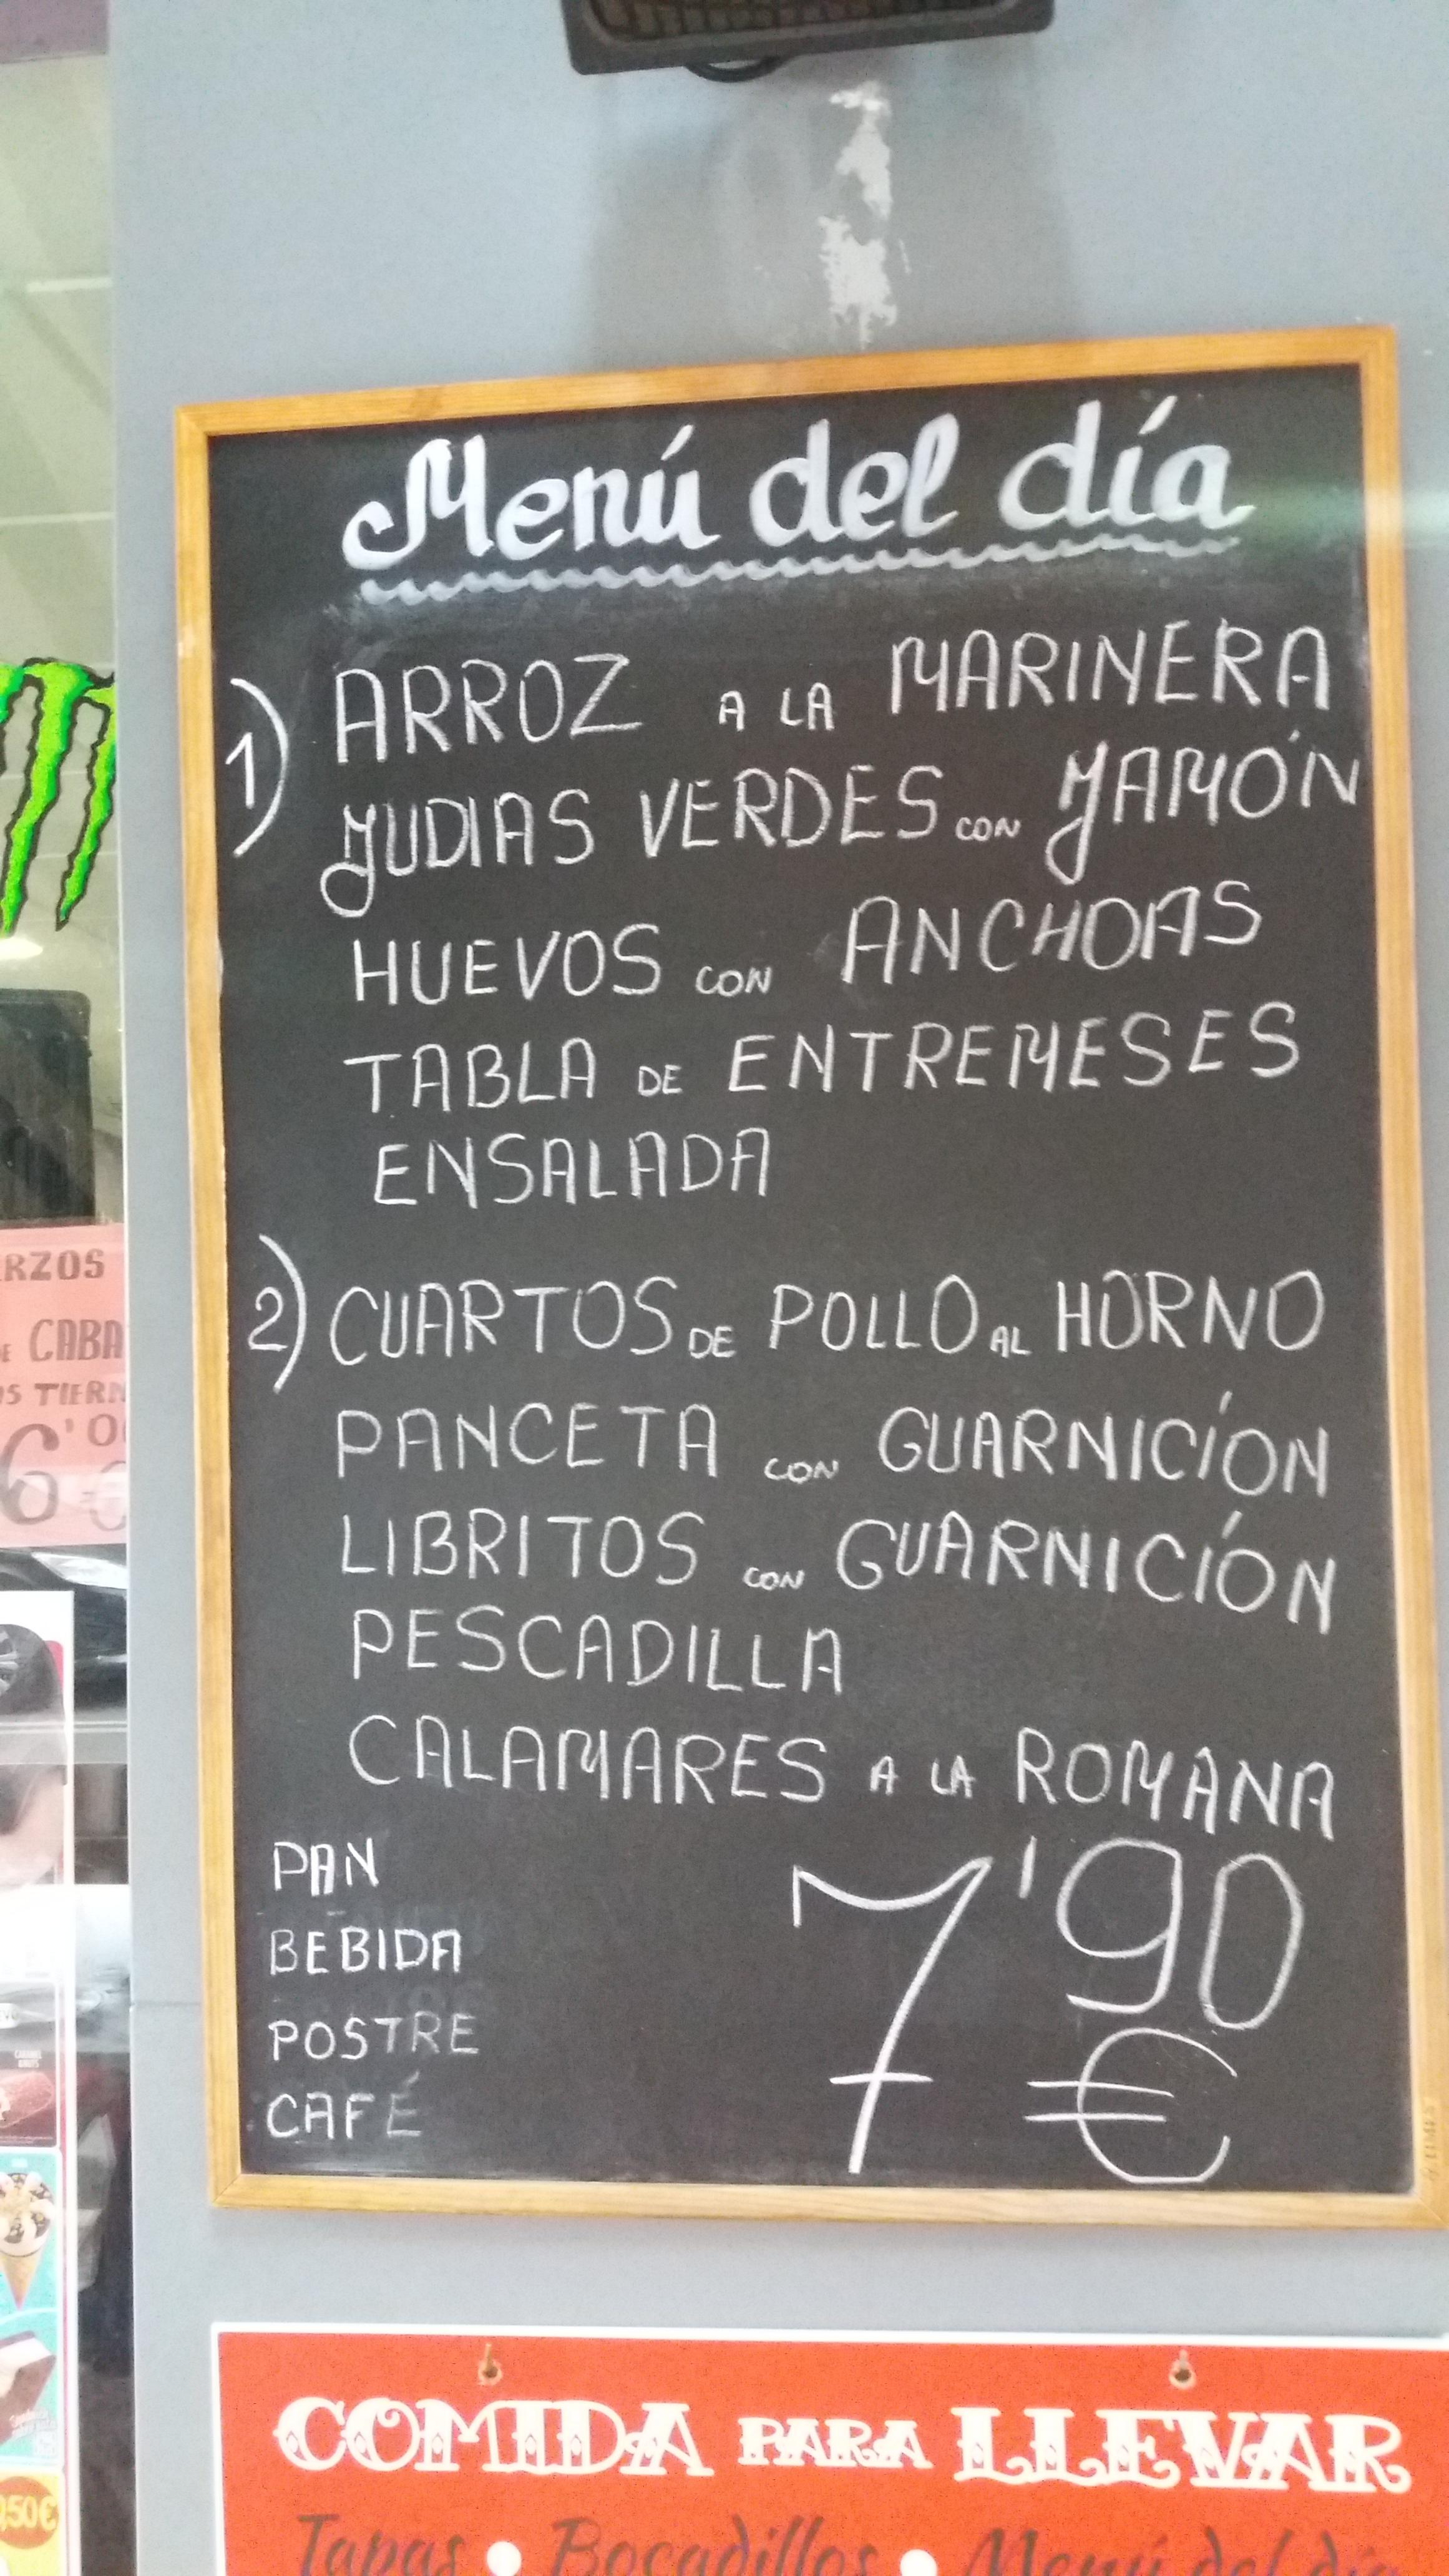 Menú del día
1) ARROZ A LA MARINERA
JUDIAS VERDES CON JAMÓN
HUEVOS CON ANCHOAS
TABLA DE ENTREMESES
ENSALADA
2) CUARTOS DE POLLO AL HORNO
PANCETA CON GUARNICIÓN
LIBRITOS CON GUARNICIÓN
PESCADILLA
CALAMARES A LA ROMANA
PAN
BEBIDA
POSTRE
CAFÉ
7'90
€
RZOS
CABA
OS TIERN
6'0
€
50€
COMIDA PARA LLEVAR
Tapas • Bocadillos • Menú del dí